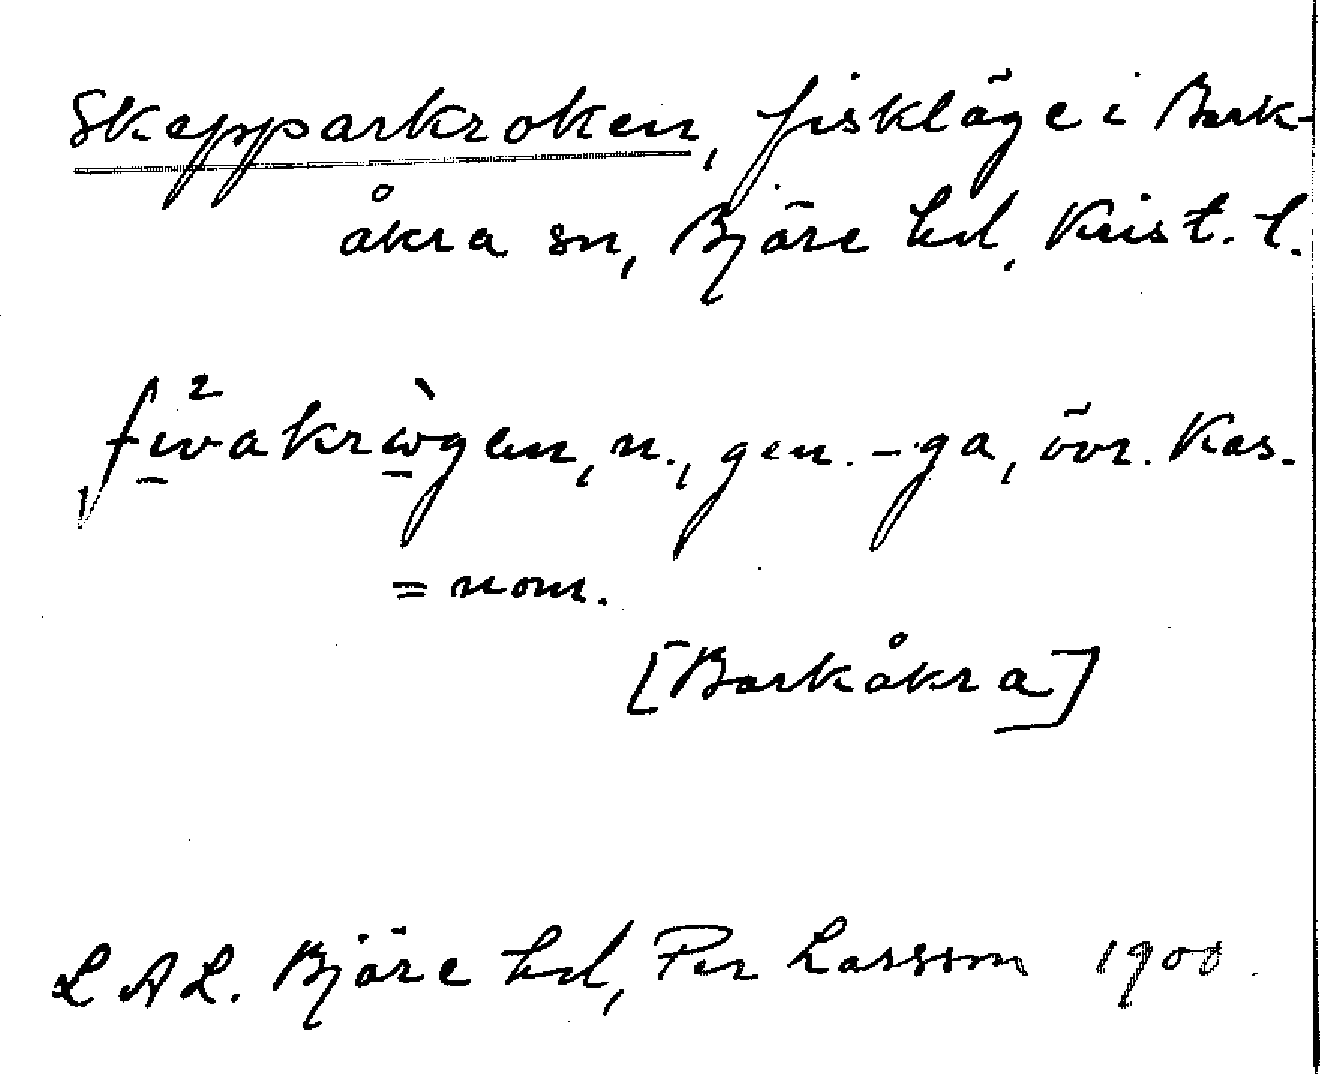 Skepparkroken, fiskläge i Bark-
åkra sn, Bjäre hd, Krist. l.
n., gen. -ga, övr. kas.
= nom.
[Barkåkra]
LAL. Bjäre hd, Per Larsson 1900.